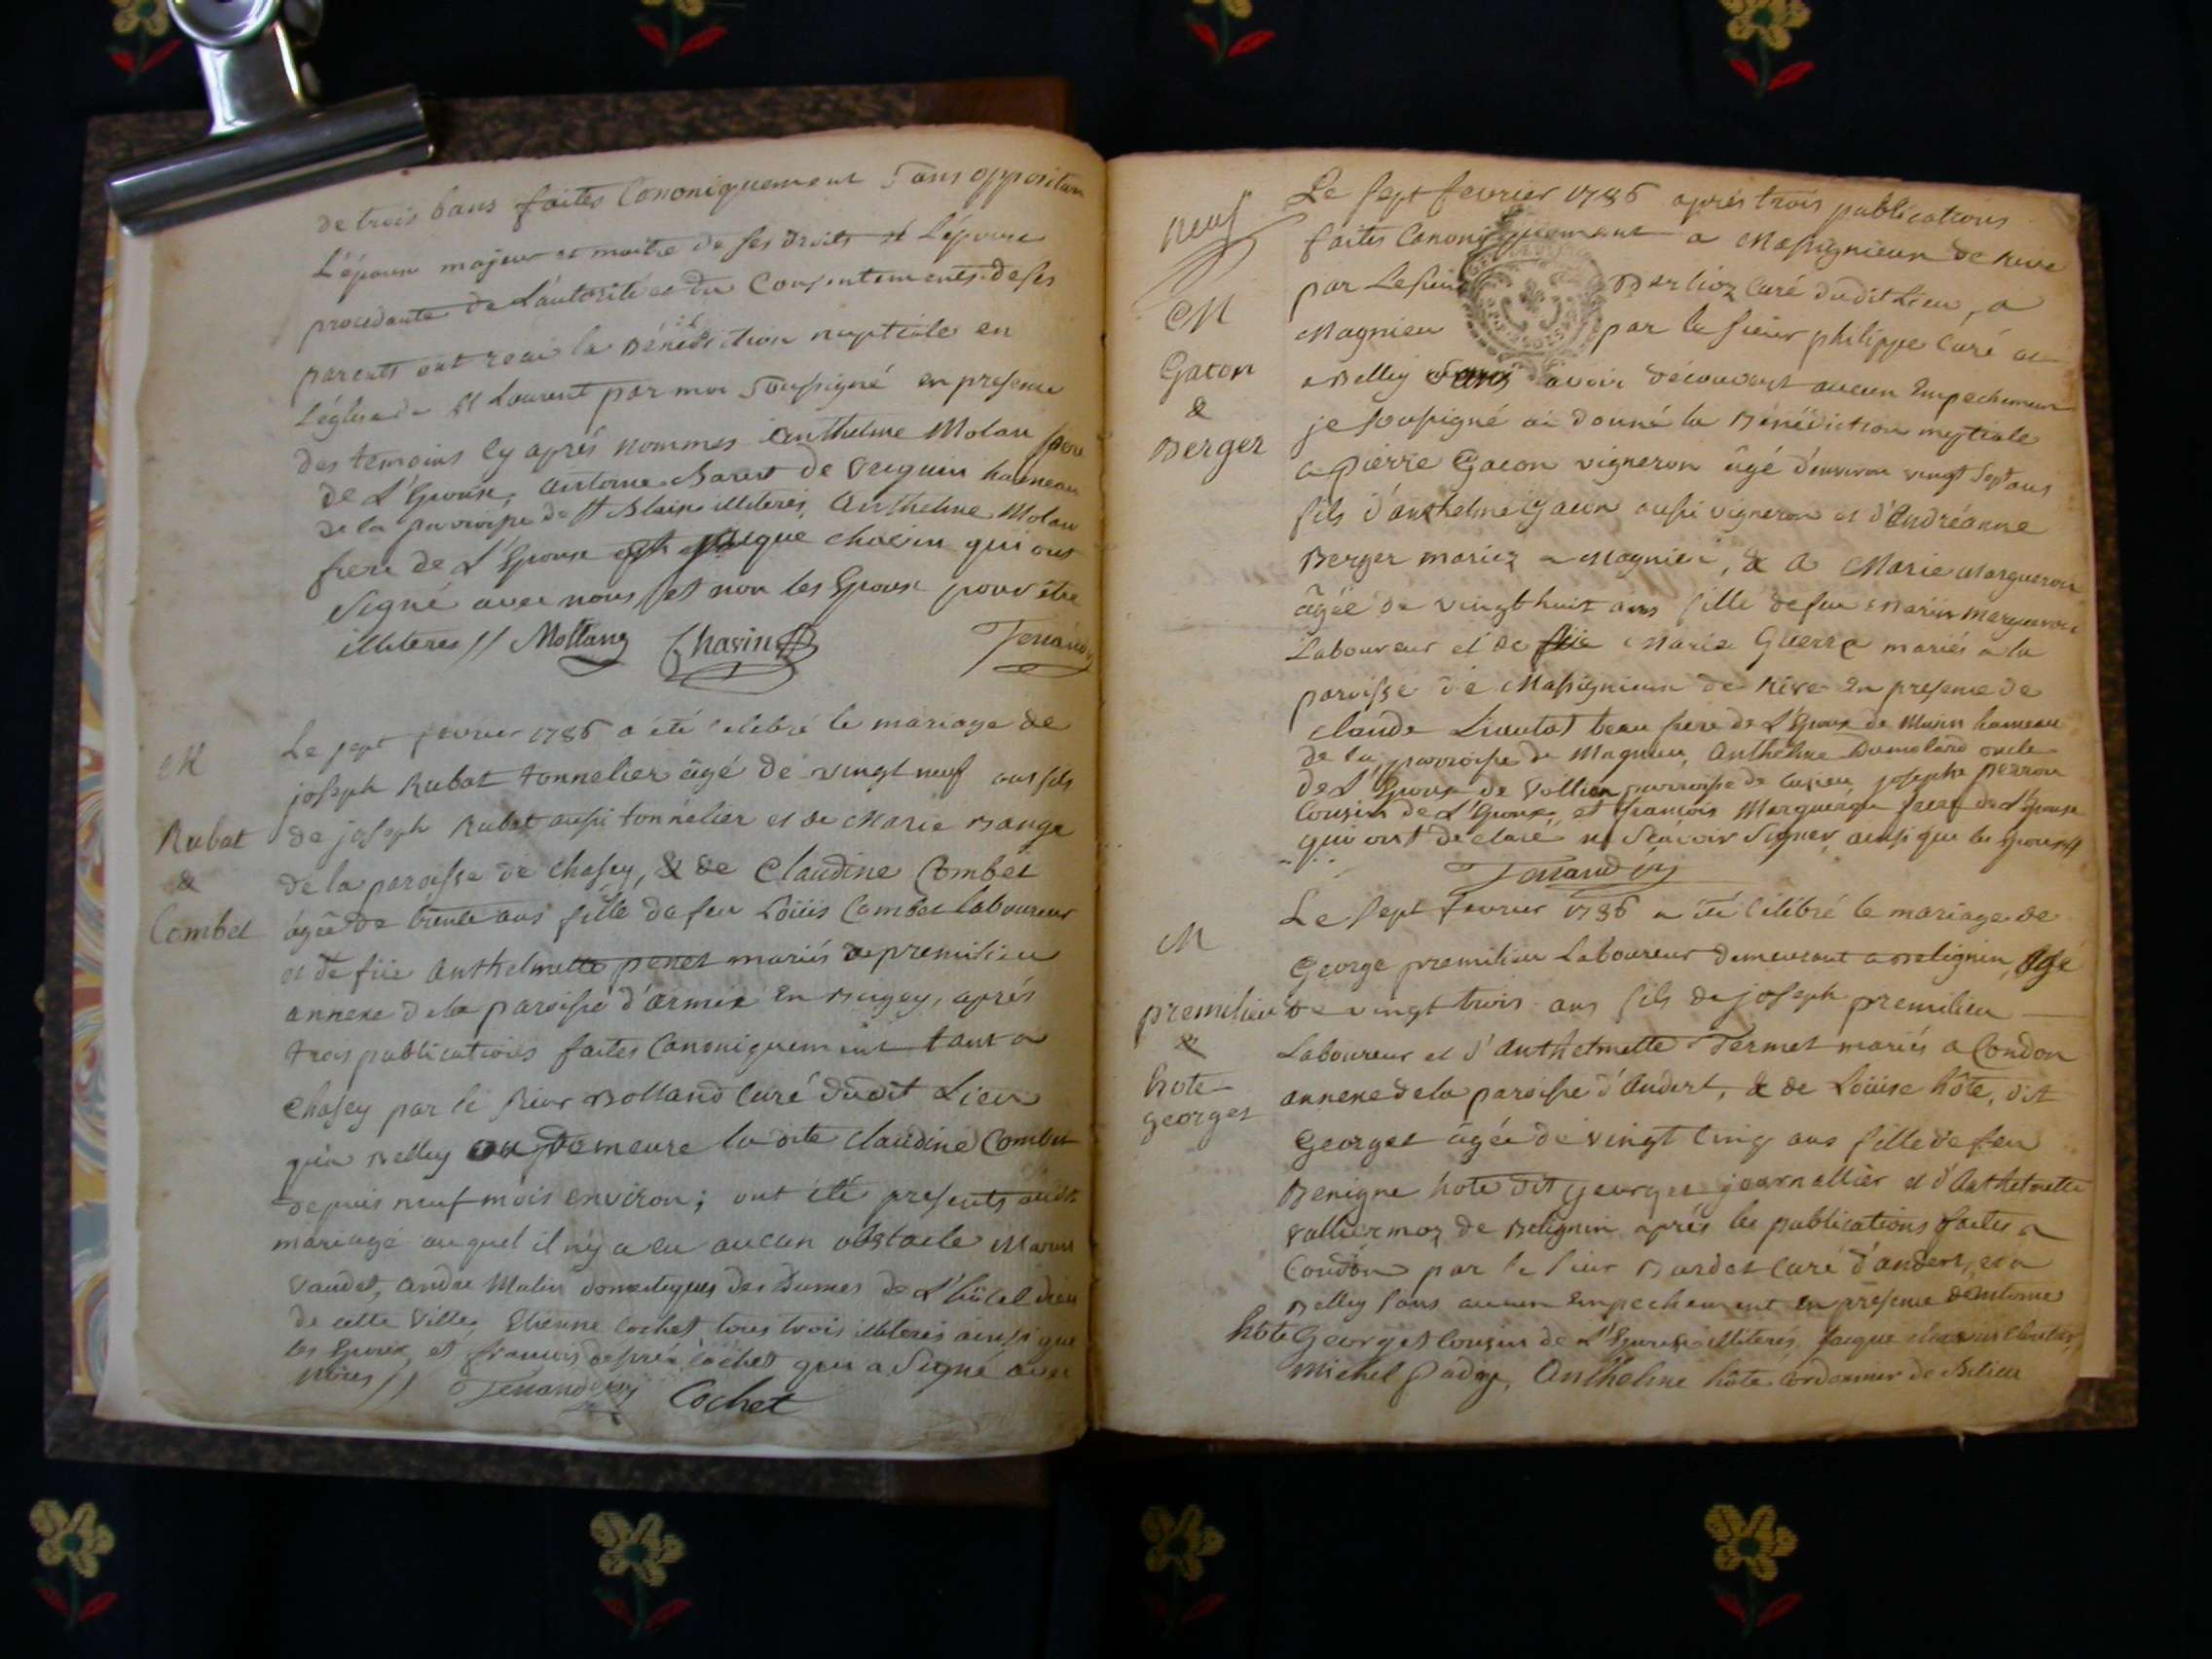 de trois bans faites Canoniquement sans opposition
L'époux majeur et maitre de ses droits et L'épouse
procedante de L'autorité et du Consentement de ses
parents ont recu la Bénédiction nuptiale en
L'église de St Laurent par moi soussigné en presence
des temoins cy aprés nommes Anthelme Molan pere
de L'Epouse, Antoine Baret de hameau
de la paroisse de St Blaise illiteres, Anthelme Molan
frere de L'Epouse et jaque chavin qui ont
signé avec nous, et non les Epoux pour être
illiteres // Mollang Chavin
M
Rubat
&
Combet
Le sept fevrier 1786 a été celebré le mariage de
joseph Rubat tonnelier âgé de vingt neuf ans fils
de joseph Rubat aussi tonnélier et de Marie Bange
de la paroisse de chasey, & de Claudine Combet
âgée de trente ans fille de feu Loüis Combet laboureur
et de füe Anthelmette penet mariés a premilieu
annexe de la paroisse d'armix en Bugey, aprés
trois publications faites Canoniquement tant a
Chasey par le sieur Bolland Curé dudit Lieu
qu'a Belley ou demeure la dite claudine Combet
depuis neuf mois environ; ont été presents audit
mariage auquel il n'y a eu aucun obstacle Marin
Vaudet, andre Mutin domestiques des Dames de L'hôtel dieu
de cette ville, Etienne Cochet tous trois illiteres ainsi que
les Epoux, et francois Cochet qui a signé avec
nous // Cochet
neuf
M
Gacon
&
Berger
Le sept fevrier 1786 aprés trois publications
faites Canoniquement a Massignieu de Rive
par Le sieur Berlioz Curé dudit Lieu, a
Magnieu par le sieur philippe Curé et
a Belley sans avoir découvert aucun Empechement
je soussigné ai donné la Bénédiction nuptiale
a pierre Gacon vigneron âgé d'environ vingt sept ans
fils d'anthelme Gacon aussi vigneron et d'Andréanne
Berger mariez a Magnieu, & a Marie Margueron
âgée de vingt huit ans fille de feu Marin Margueron
Laboureur et de füe Marie Guerre mariés a la
paroisse de Massignieu de Rive en presence de
claude Lieutat beau frere de L'Epoux de Musin hameau
de la parroisse de Magnieu, Anthelme Dumolard oncle
de L'Epoux de Vollien parroisse de Cusieu, josephe perron
Cousin de L'Epoux, et francois Margueron frere de L'Epouse
qui ont declaré ne scavoir signer, ainsi que les Epoux //
M
premilieu
&
hote
georget
Le sept fevrier 1786 a été célébré le mariage de
George premilieu Laboureur demeurant a Belignin, âgé
de vingt trois ans fils de joseph premilieu
Laboureur et d'Anthelmette Termet mariés a Condon
annexe de la paroisse d'Andert, & de Loüise hôte, dit
Georget âgée de vingt cinq ans fille de feu
Benigne hote dit georget journallier et d'Anthelmette
Valliermoz de Belignin aprés les publications faites a
Condon par le sieur Bardet Curé d'andert, et a
Belley sans aucun Empechement en presence d'antoine
hôte Georget Cousin de L'Epouse illiterés, jaque
Michel Pady, Anthelme hôte Cordonnier de Bilieu